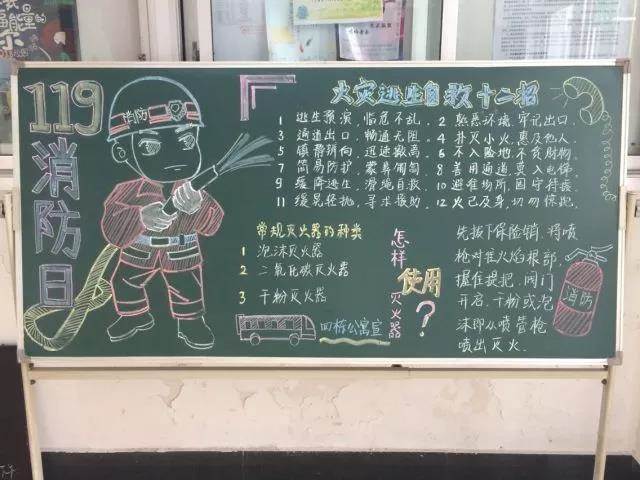 119
消防日
消防
火灾逃生自救十二招
1 逃生预演，临危不乱. 2 熟悉环境，牢记出口.
3 通道出口，畅通无阻. 4 扑灭小火，惠及他人.
5 镇静辨向，迅速撤离. 6 不入险地，不贪财物.
7 简易防护，蒙鼻匍匐. 8 善用通道，莫入电梯.
9 缓降逃生，滑绳自救. 10 避难场所，固守待援.
11 缓晃轻抛，寻求援助. 12 火已及身，切勿惊跑.
常规灭火器的种类
1 泡沫灭火器
2 二氧化碳灭火器
3 干粉灭火器
四栋公寓宣
怎样使用灭火器？
先拔下保险销，将喷
枪对准火焰根部
握住提把，阀门
开启，干粉或泡
沫即从喷管枪
喷出灭火.
消防